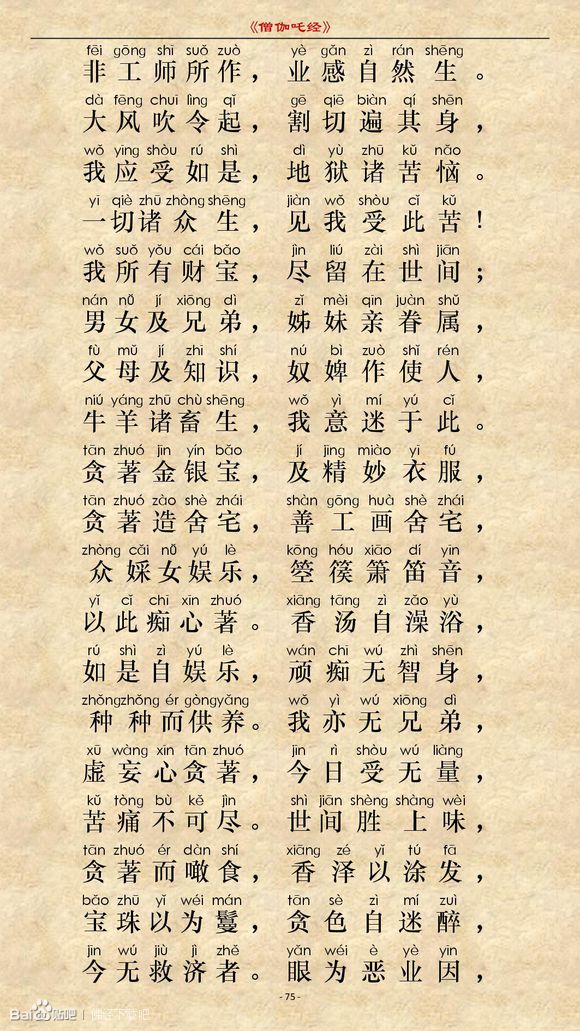 《僧伽吒经》
fēi gōng shī suǒ zuò yè gǎn zì rán shēng
非工师所作，业感自然生。
dà fēng chuī lìng qǐ gē qiē biàn qí shēn
大风吹令起，割切遍其身，
wǒ yīng shòu rú shì dì yù zhū kǔ nǎo
我应受如是，地狱诸苦恼。
yī qiè zhū zhòng shēng jiàn wǒ shòu cǐ kǔ
一切诸众生，见我受此苦！
wǒ suǒ yǒu cái bǎo jìn liú zài shì jiān
我所有财宝，尽留在世间；
nán nǚ jí xiōng dì zǐ mèi qīn juàn shǔ
男女及兄弟，姊妹亲眷属，
fù mǔ jí zhī shí nú bì zuò shǐ rén
父母及知识，奴婢作使人，
niú yáng zhū chù shēng wǒ yì mí yú cǐ
牛羊诸畜生，我意迷于此。
tān zhuó jīn yín bǎo jí jīng miào yī fú
贪著金银宝，及精妙衣服，
tān zhuó zào shè zhái shàn gōng huà shè zhái
贪著造舍宅，善工画舍宅，
zhòng cǎi nǚ yú lè kōng hóu xiāo dí yīn
众婇女娱乐，箜篌箫笛音，
yǐ cǐ chī xīn zhuó xiāng tāng zì zǎo yù
以此痴心著。香汤自澡浴，
rú shì zì yú lè wán chī wú zhì shēn
如是自娱乐，顽痴无智身，
zhǒngzhǒng ér gòngyǎng wǒ yì wú xiōng dì
种种而供养。我亦无兄弟，
xū wàng xīn tān zhuó jīn rì shòu wú liàng
虚妄心贪著，今日受无量，
kǔ tòng bù kě jìn shì jiān shèng shàng wèi
苦痛不可尽。世间胜上味，
tān zhuó ér dàn shí xiāng zé yǐ tú fā
贪著而噉食，香泽以涂发，
bǎo zhū yǐ wéi mán tān sè zì mí zuì
宝珠以为鬘，贪色自迷醉，
jīn wú jiù jì zhě yǎn wéi è yè yīn
今无救济者。眼为恶业因，
- 75 -
Bai贴吧 | 佛经下载吧